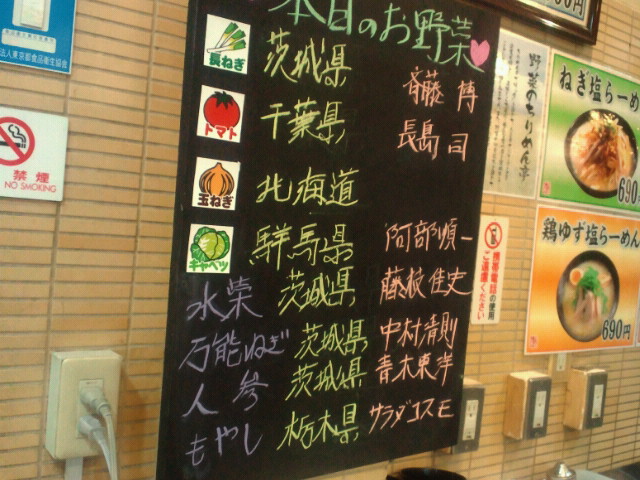 本日のお野菜
長ねぎ 茨城県 斉藤 博
トマト 千葉県 長島 司
玉ねぎ 北海道
キャベツ 群馬県 阿部順一
水菜 茨城県 藤枝佳史
万能ねぎ 茨城県 中村清則
人参 茨城県 青木東洋
もやし 栃木県 サラダコスモ
法人東京都食品衛生協会
禁煙
NO SMOKING
携帯電話の使用
ご遠慮ください
野菜のちりめん亭
ねぎ塩らーめん
690
鶏ゆず塩らーめん
690円
00円